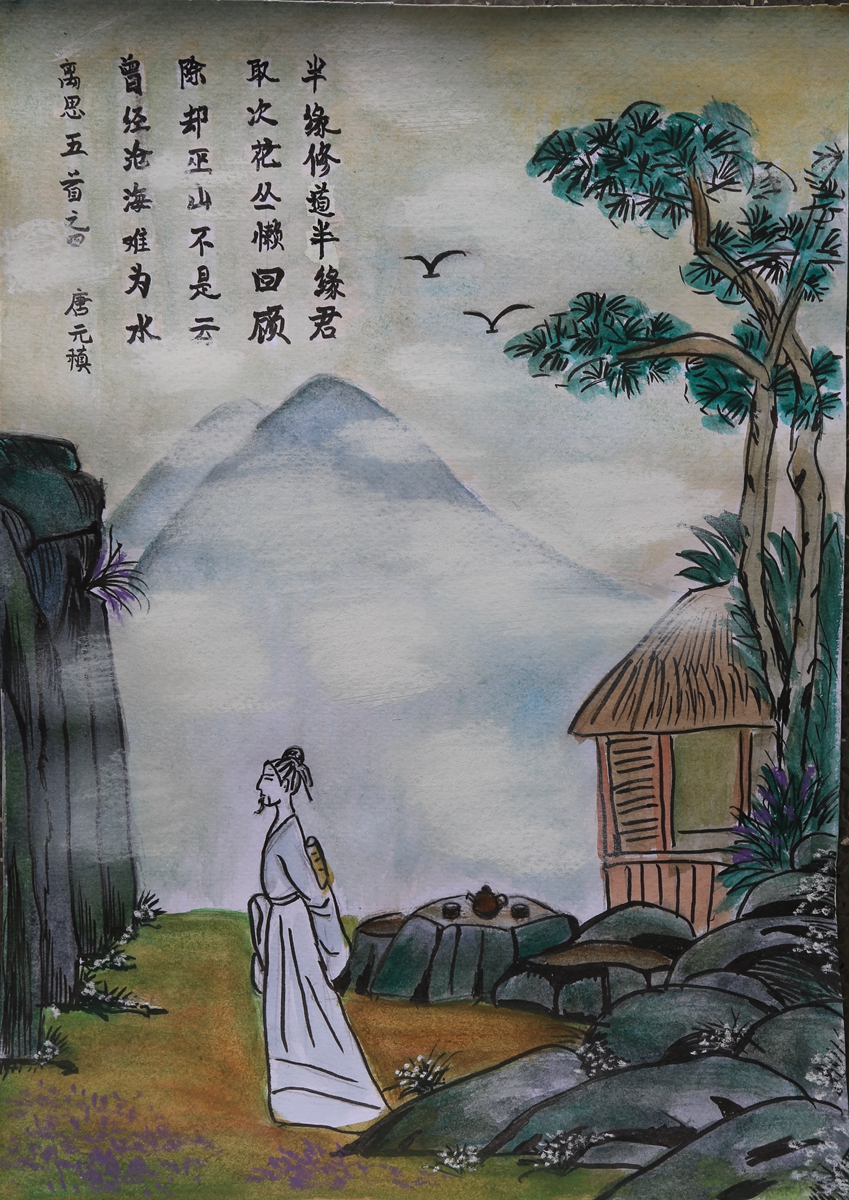 离思五首之四 唐元稹
曾经沧海难为水
除却巫山不是云
取次花丛懒回顾
半缘修道半缘君